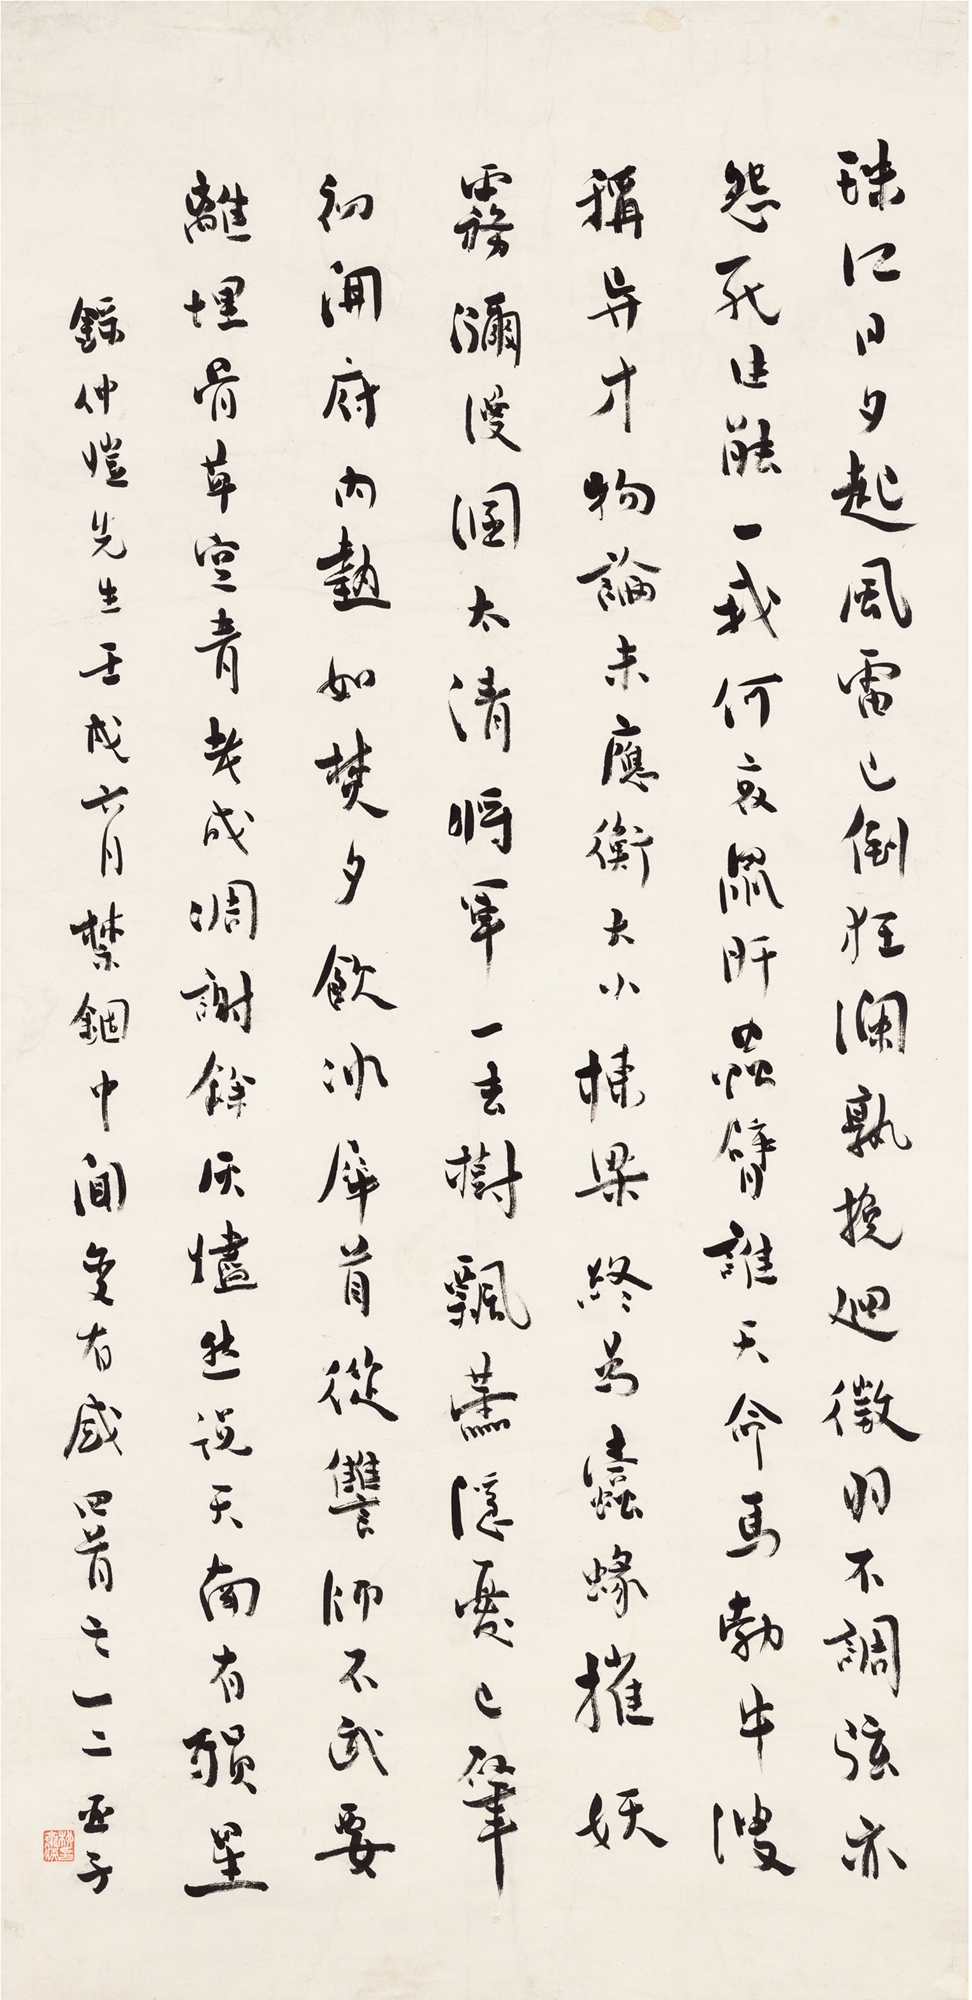 珠江日夕起風雷已倒狂瀾孰挽廻徵羽不調弦亦
怨死生能一我何哀鼠肝蟲臂誰天命馬勃牛溲
稱异才物論未應衡大小棟梁終為蠹蝝摧妖
霧瀰漫溷太清將軍一去樹飄蕭隱憂已肇
初開府內熱如焚夕飲冰犀首從讐師不武要
離埋骨草空青老成凋謝餘灰燼愁說天南有隕星
錄仲愷先生壬戌六月禁錮中聞變有感四首之一二亞子